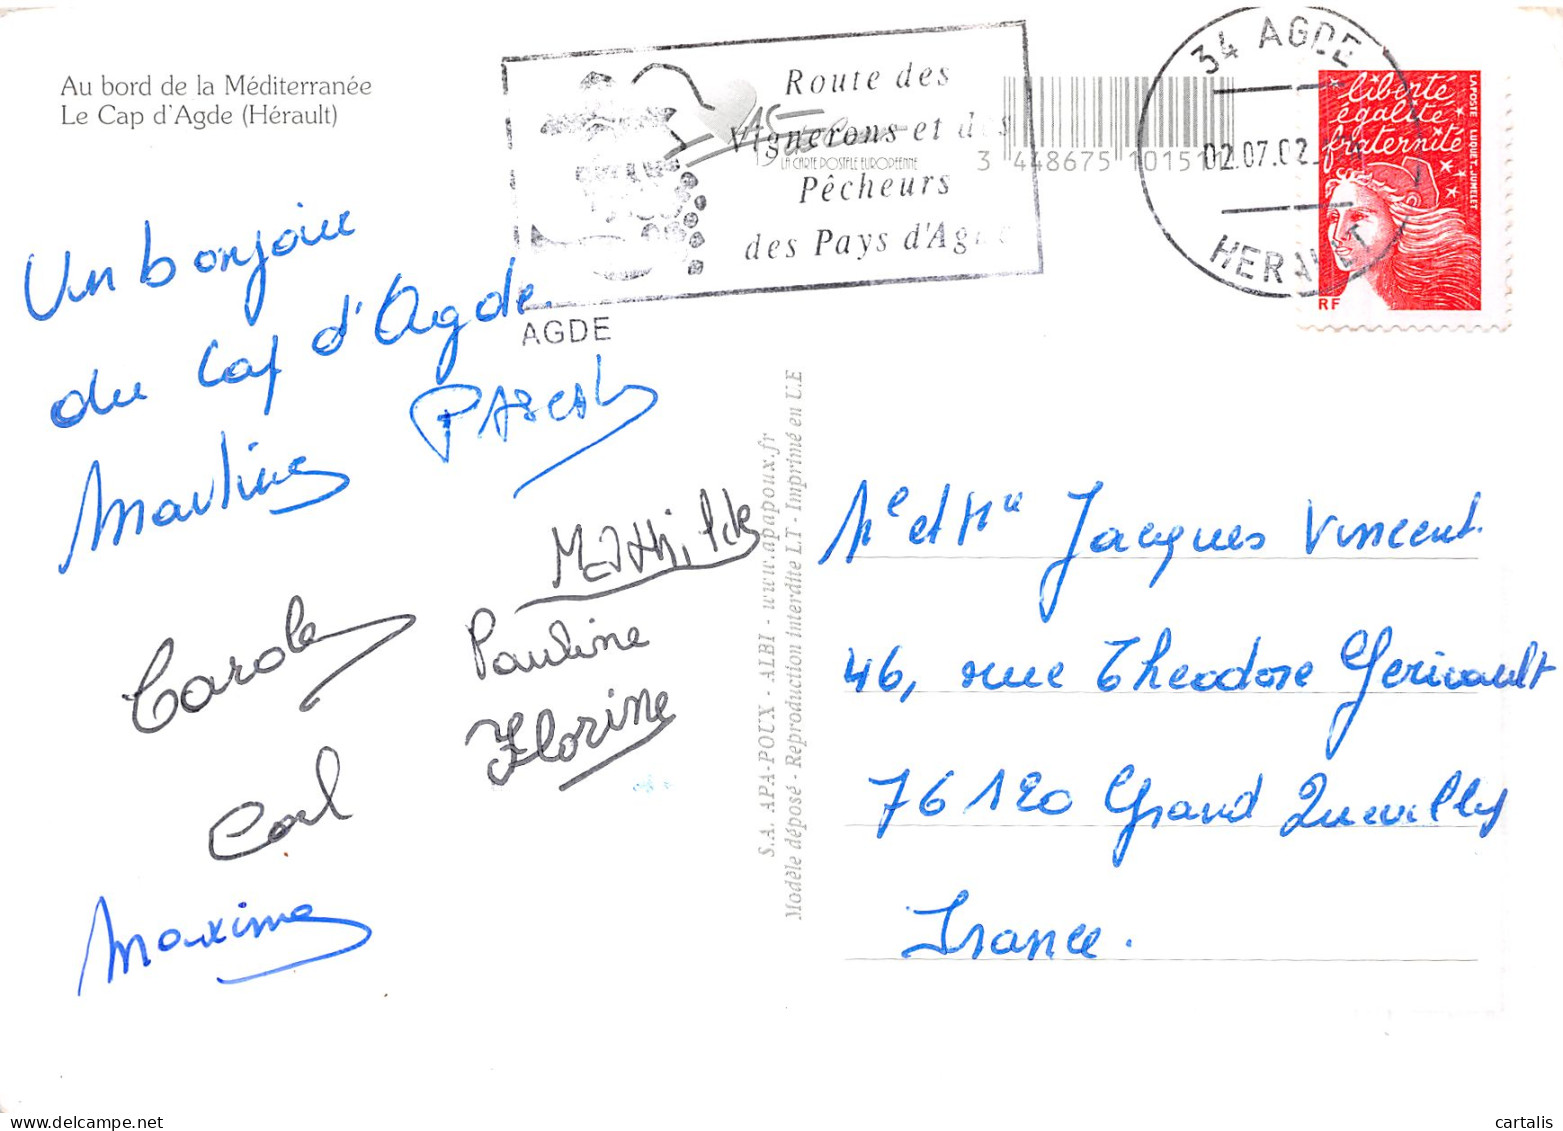 Au bord de la Méditerranée
Le Cap d'Agde (Hérault)
Route des
Vignerons et des
Pêcheurs
des Pays d'Agde
AGDE
LA CARTE POSTALE EUROPÉENNE
3 448675 10151
34 AGDE
02.07.02
HERAULT
liberté
égalité
fraternité
LA POSTE LUQUET.JUMELET
RF
Un bonjour
du Cap d'Agde.
Martine Pascal
Mathilde
Carole Pauline
Florine
Carl
Maxime
S.A. APA-POUX - ALBI - www.apapoux.fr
Modèle déposé - Reproduction interdite LT - Imprimé en U.E
Me et Mr Jacques Vincent.
46, rue Theodore Gericault
76120 Grand Quevilly
France.